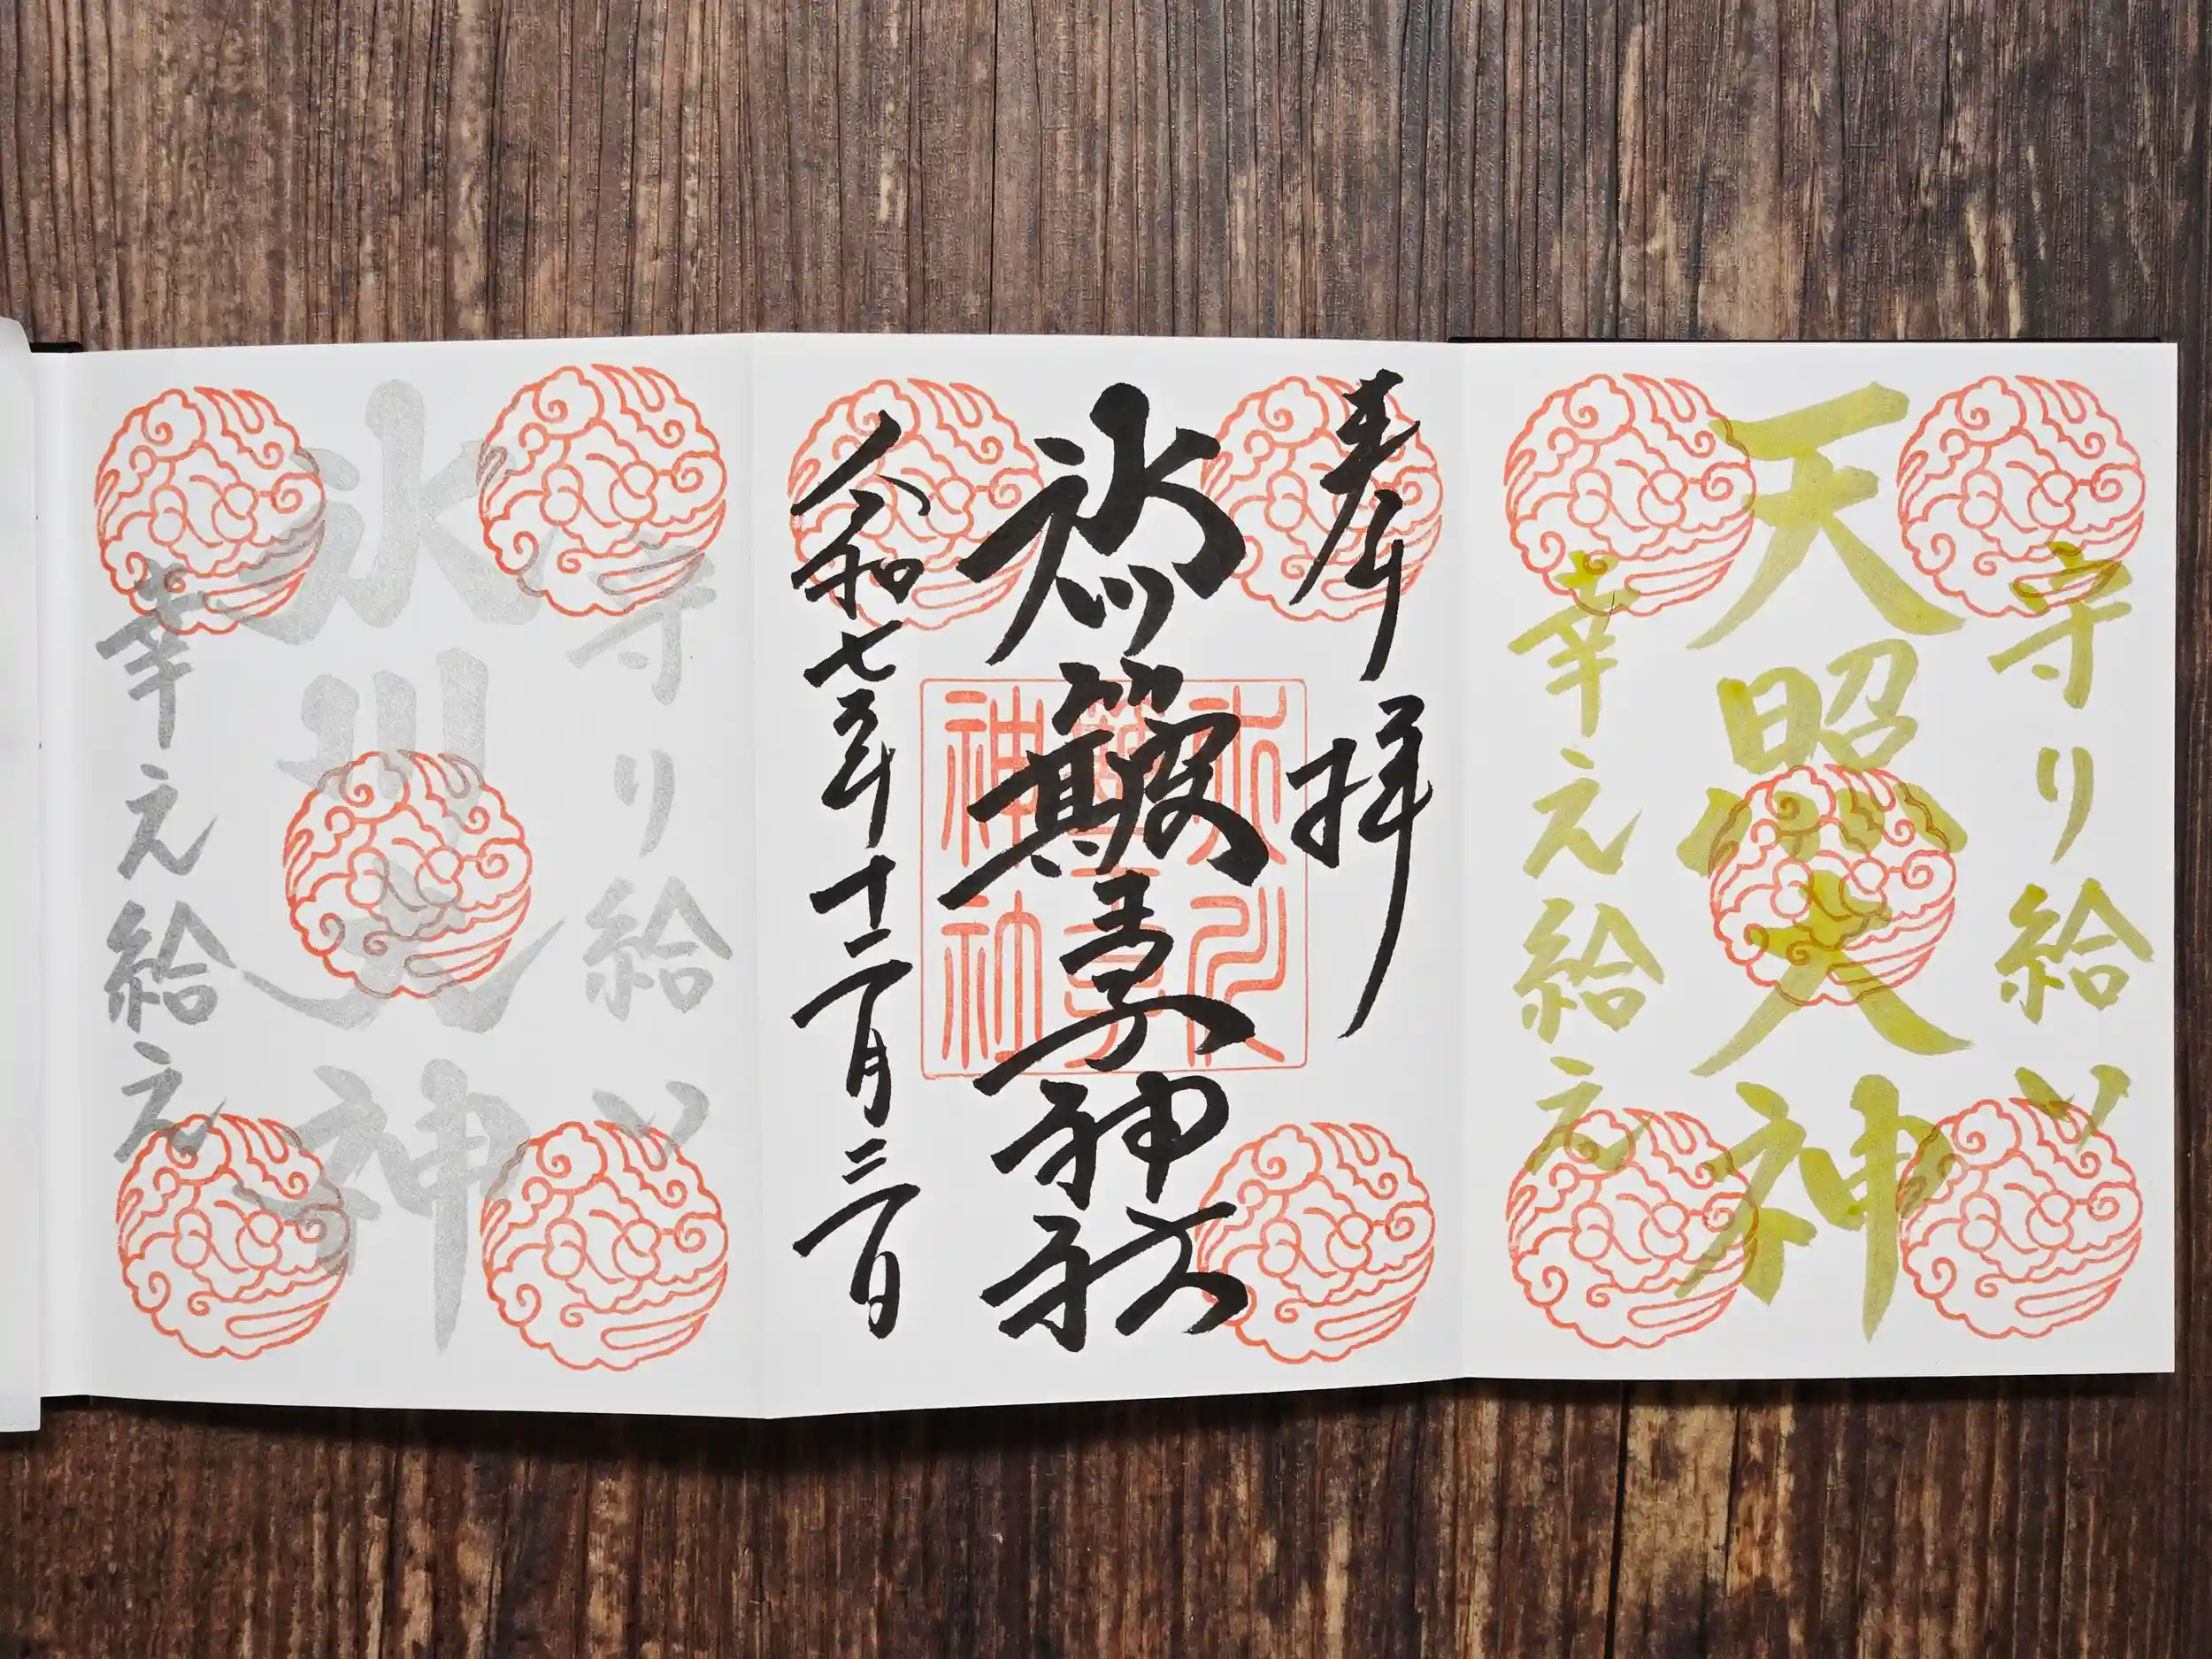 守り給い
天照大神
幸え給え
奉拝
氷川簸王子神社
氷川
簸王子
神社
令和七年十二月三日
守り給い
氷川大神
幸え給え